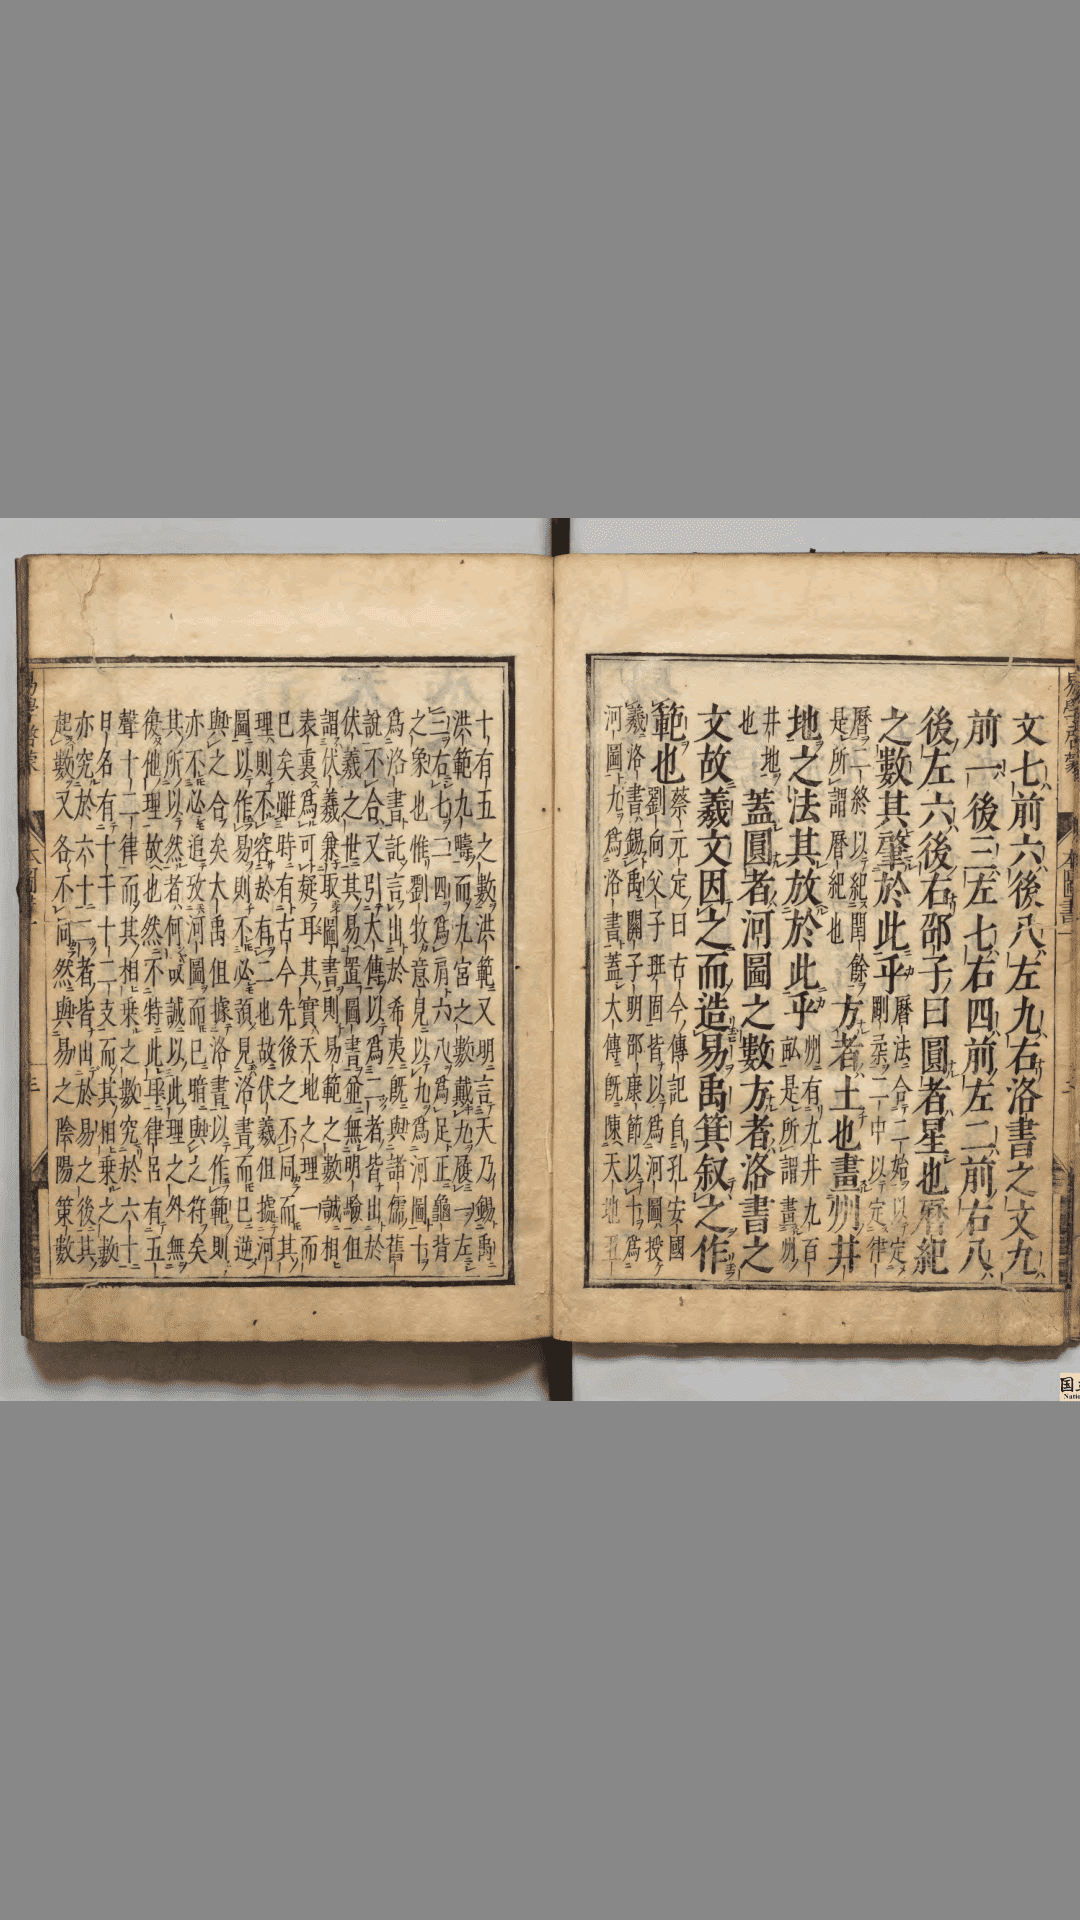 文七前六後八左九右洛書之文九
前一後三左七右四前左二前右八
後左六後右邵子曰圓者星也曆紀
之數其肇於此乎
曆法合二始以定
剛柔二中以定律
曆二終以紀閏餘
是所謂曆紀也
方者土也畫州井
地之法其放於此乎
州有九井九百
畝是所謂畫州
井地
也
蓋圓者河圖之數方者洛書之
文故羲文因之而造易禹箕叙之作
範也
蔡元定曰古今傳記自孔安國
劉向父子班固皆以爲河圖授
羲洛書錫禹關子明邵康節以十爲
河圖九爲洛書蓋大傳既陳天地五
十有五之數洪範又明言天乃錫禹
洪範九疇而九宮之數戴九履一左
三右七二四爲肩六八爲足正龜背
之象也惟劉牧意見以九爲河圖十
爲洛書託言出於希夷既與諸儒舊
說不合又引大傳以爲二者皆出於
伏羲之世其易置圖書並無明驗但
謂伏羲兼取圖書則易範之數誠相
表裏爲可疑耳其實天地之理一而
已矣雖時有古今先後之不同而其
理則不容於有二也故伏羲但據河
圖以作易則不必預見洛書而已逆
與之合矣大禹但據洛書以作範則
亦不必追攷河圖而已暗與之符矣
其所以然者何哉誠以此理之外無
復他理故也然不特此耳律呂有五
聲十二律而其相乘之數究於六十
日名有十干十二支而其相乘之數
亦究於六十二者皆出於易之後其
起數又各不同然與易之陰陽策數